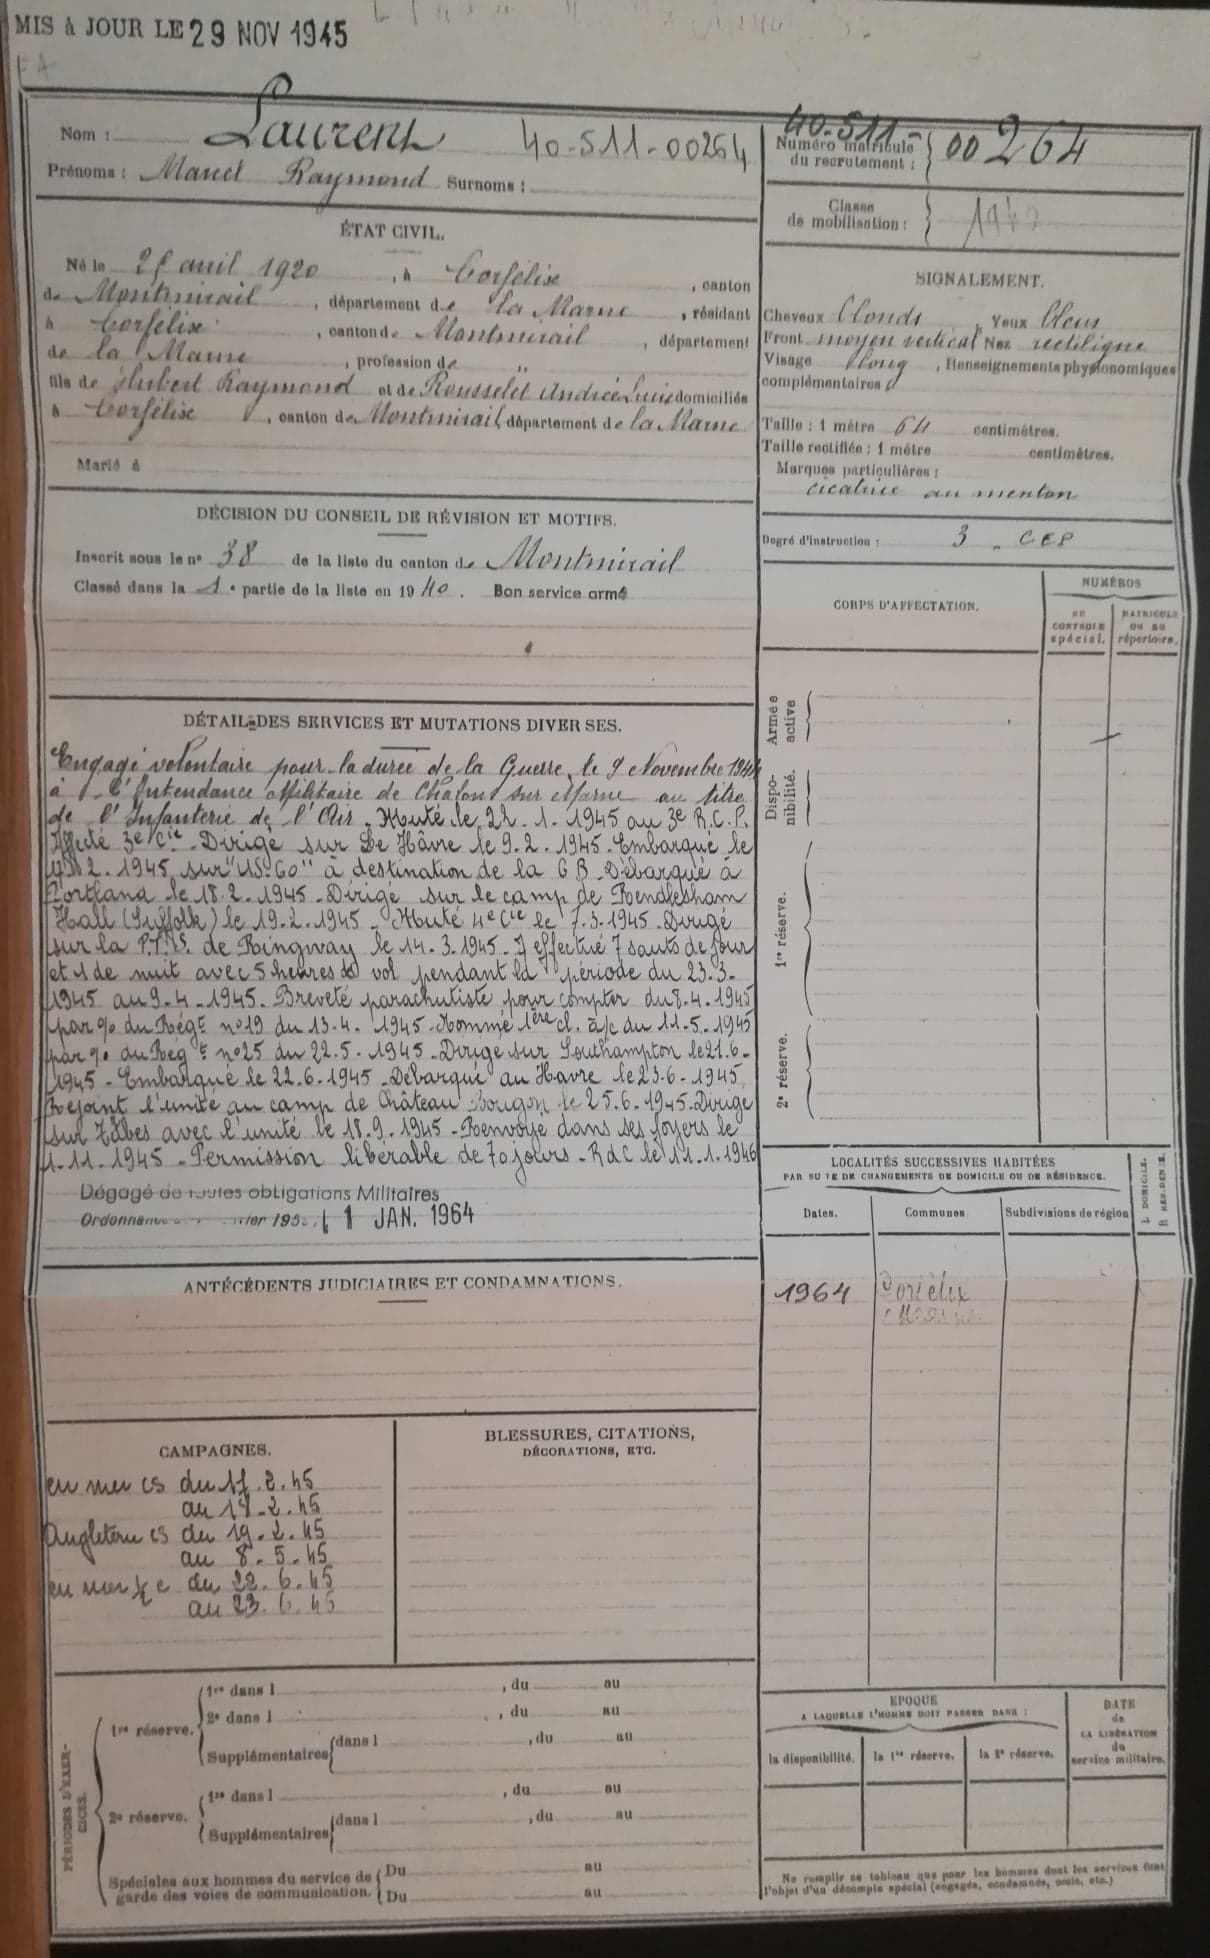 MIS à JOUR LE 29 NOV 1945
Nom : Laurent 40-511-00264
Prénoms : Marcel Raymond Surnoms :
40-511-
Numéro matricule du recrutement : 00264
Classe de mobilisation : 1940
ÉTAT CIVIL.
Né le avril 1920, à Corfélix, canton
de Montmirail, département de la Marne, résidant
à Corfélix, canton de Montmirail, département
de la Marne, profession de "
fils de Hubert Raymond et de Rousselet Andrée Lucie domiciliés
à Corfélix, canton de Montmirail, département de la Marne
Marié à
SIGNALEMENT.
Cheveux blonds, Yeux bleus
Front moyen vertical Nez rectiligne
Visage long, Renseignements physionomiques
complémentaires
Taille : 1 mètre 64 centimètres.
Taille rectifiée : 1 mètre centimètres.
Marques particulières :
cicatrice au menton
Degré d'instruction : 3 - CEP
DÉCISION DU CONSEIL DE RÉVISION ET MOTIFS.
Inscrit sous le nº 38 de la liste du canton de Montmirail
Classé dans la 1e partie de la liste en 1940. Bon service armé
DÉTAIL DES SERVICES ET MUTATIONS DIVERSES.
Engagé volontaire pour la durée de la Guerre, le 9 Novembre 1944
à l'Intendance Militaire de Châlons sur Marne au titre
de l'Infanterie de l'Air. Muté le 22.1.1945 au 3e R.C.P.
Affecté 3e Cie. Dirigé sur Le Hâvre le 9.2.1945. Embarqué le
2.1945 sur "US-60" à destination de la GB. Débarqué à
Portland le 18.2.1945 - Dirigé sur le camp de Rendlesham
Hall (Suffolk) le 19.2.1945 - Muté 4e Cie le 7.3.1945. Dirigé
sur la P.T.S. de Ringway le 14.3.1945. A effectué 7 sauts de jour
et 1 de nuit avec 5 heures de vol pendant la période du 23.3-
1945 au 9.4.1945. Breveté parachutiste pour compter du 8.4.1945
par % du Régt nº 19 du 13.4.1945. Nommé 1ère cl. à/c du 11.5.1945
par % du Régt nº 25 du 22.5.1945 - Dirigé sur Southampton le 21.6-
1945 - Embarqué le 22.6.1945 - Débarqué au Havre le 23.6.1945
Rejoint l'unité au camp de Château Bougon le 25.6.1945. Dirigé
sur Tarbes avec l'unité le 18.9.1945 - Renvoyé dans ses foyers le
1.11.1945 - Permission libérable de 70 jours - RdC le 11.1.1946
Dégagé de toutes obligations Militaires
Ordonnance 1 JAN. 1964
CORPS D'AFFECTATION.
NUMÉROS
DE CONTROLE spécial.
MATRICULE OU AU répertoire.
Armée active
Disponibilité.
1re réserve.
2e réserve.
LOCALITÉS SUCCESSIVES HABITÉES
PAR SUITE DE CHANGEMENTS DE DOMICILE OU DE RÉSIDENCE.
Dates. Communes Subdivisions de région
D. DOMICILE.
R. RÉSIDENCE.
1964 Corfélix
Marne
ANTÉCÉDENTS JUDICIAIRES ET CONDAMNATIONS.
CAMPAGNES.
en mer CS du 17.2.45
au 18.2.45
Angleterre CS du 19.2.45
au 8.5.45
en mer du 22.6.45
au 23.6.45
BLESSURES, CITATIONS,
DÉCORATIONS, ETC.
PÉRIODES D'EXERCICES.
1re réserve.
1re dans l , du au
2e dans l , du au
Supplémentaires dans l , du au
2e réserve.
1re dans l , du au
Supplémentaires dans l , du au
Spéciales aux hommes du service de garde des voies de communication.
Du au
Du au
EPOQUE
A LAQUELLE L'HOMME DOIT PASSER DANS :
la disponibilité. la 1re réserve. la 2e réserve.
DATE de LA LIBÉRATION du service militaire.
Ne remplir ce tableau que pour les hommes dont les services font
l'objet d'un décompte spécial (engagés, condamnés, omis, etc.)